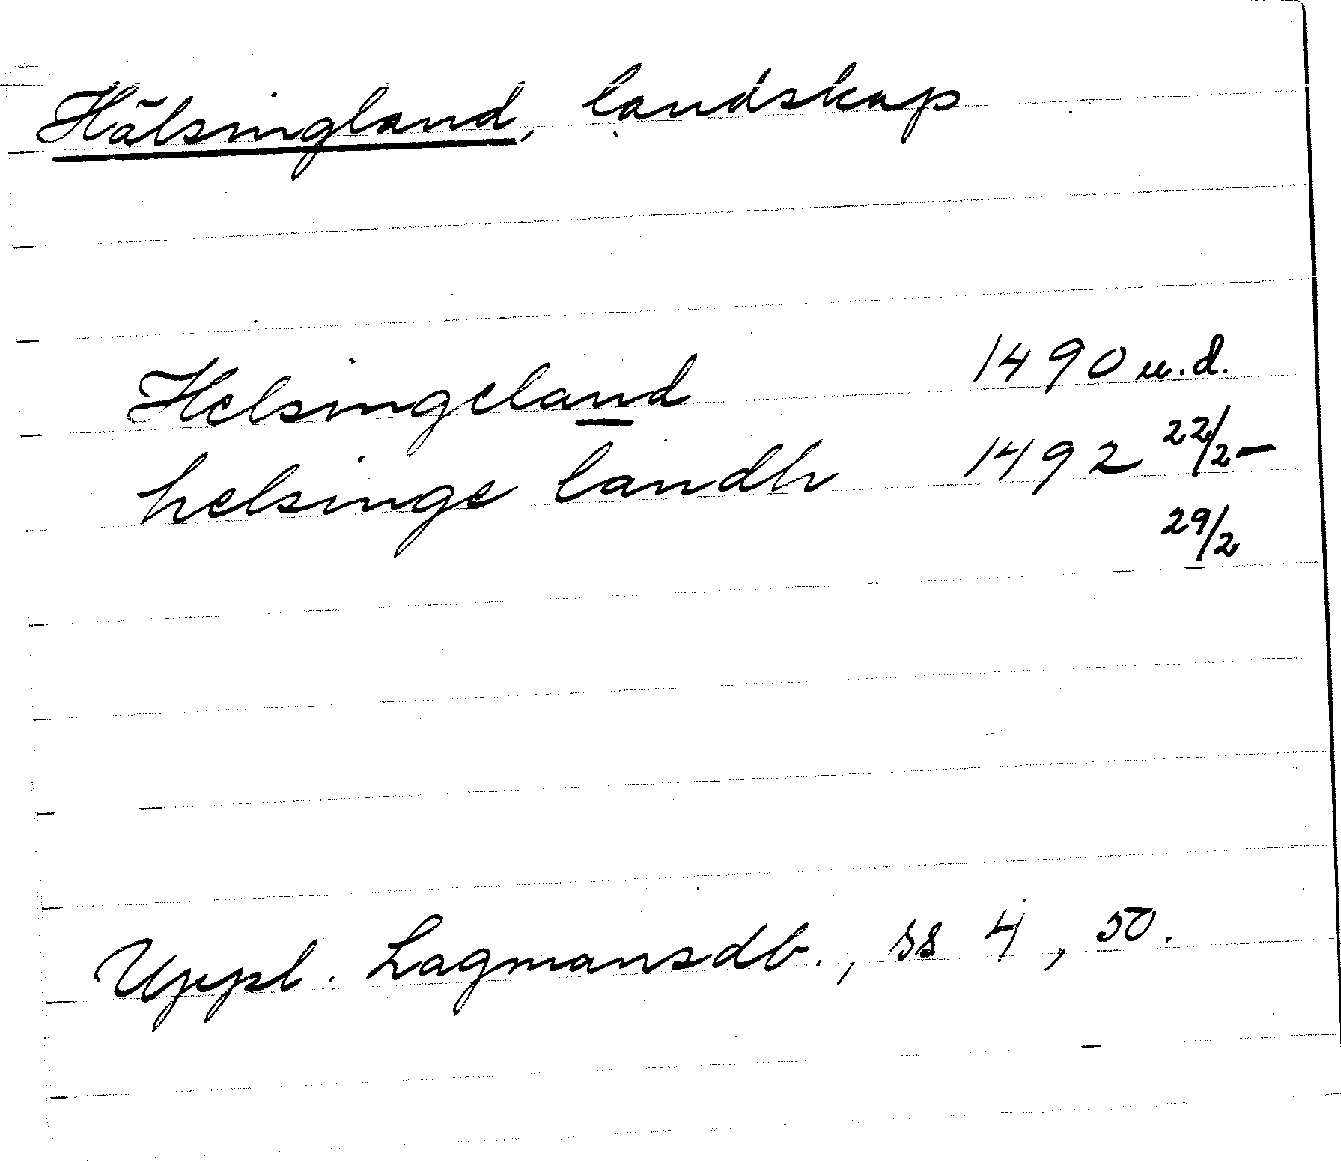 Hälsingland, landskap
Helsingeland 1490 u.d.
helsinge landh 1492 22/2-
29/2
Uppl. Lagmansdb., ss 4, 50.